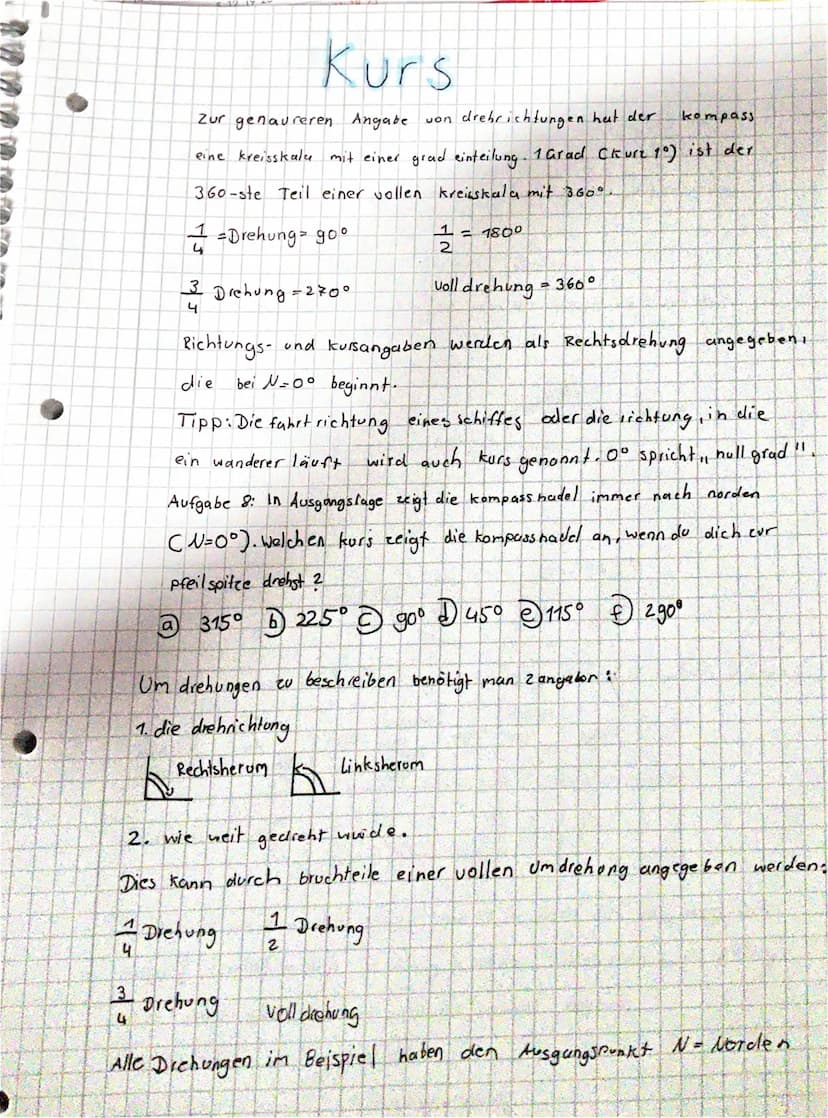 Kurs
Zur genaureren Angabe von drehrichtungen hat der kompass
eine kreisskala mit einer grad einteilung. 1 Grad (kurz 1°) ist der
360-ste Teil einer vollen kreisskala mit 360°.
1/4 =Drehung= 90° 1/2 = 180°
3/4 Drehung =270° Voll drehung = 360°
Richtungs- und kursangaben werden als Rechtsdrehung angegeben,
die bei N=0° beginnt.
Tipp: Die fahrt richtung eines schiffes oder die richtung, in die
ein wanderer läuft wird auch kurs genannt. 0° spricht „ null grad ".
Aufgabe 8: In Ausgangslage zeigt die kompassnadel immer nach norden
(N=0°). welchen kurs zeigt die kompassnadel an, wenn du dich zur
pfeilspitze drehst ?
a) 315° b) 225° c) 90° d) 45° e) 115° f) 290°
Um drehungen zu beschreiben benötigt man 2 angaben :
1. die drehrichtung
Rechtsherum Linksherum
2. wie weit gedreht wurde.
Dies kann durch bruchteile einer vollen Umdrehung angegeben werden:
1/4 Drehung 1/2 Drehung
3/4 Drehung Voll drehung
Alle Drehungen im Beispiel haben den Ausgangspunkt N = Norden